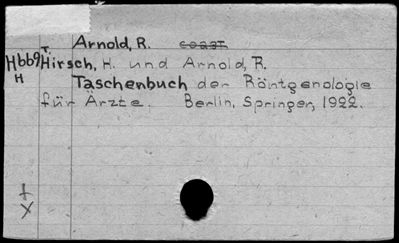 Arnold, R. coast
T.
Hbb9 Hirsch, H. und Arnold, R.
H
Taschenbuch der Röntgenologie
für Ärzte. Berlin, Springer, 1922.
+
X